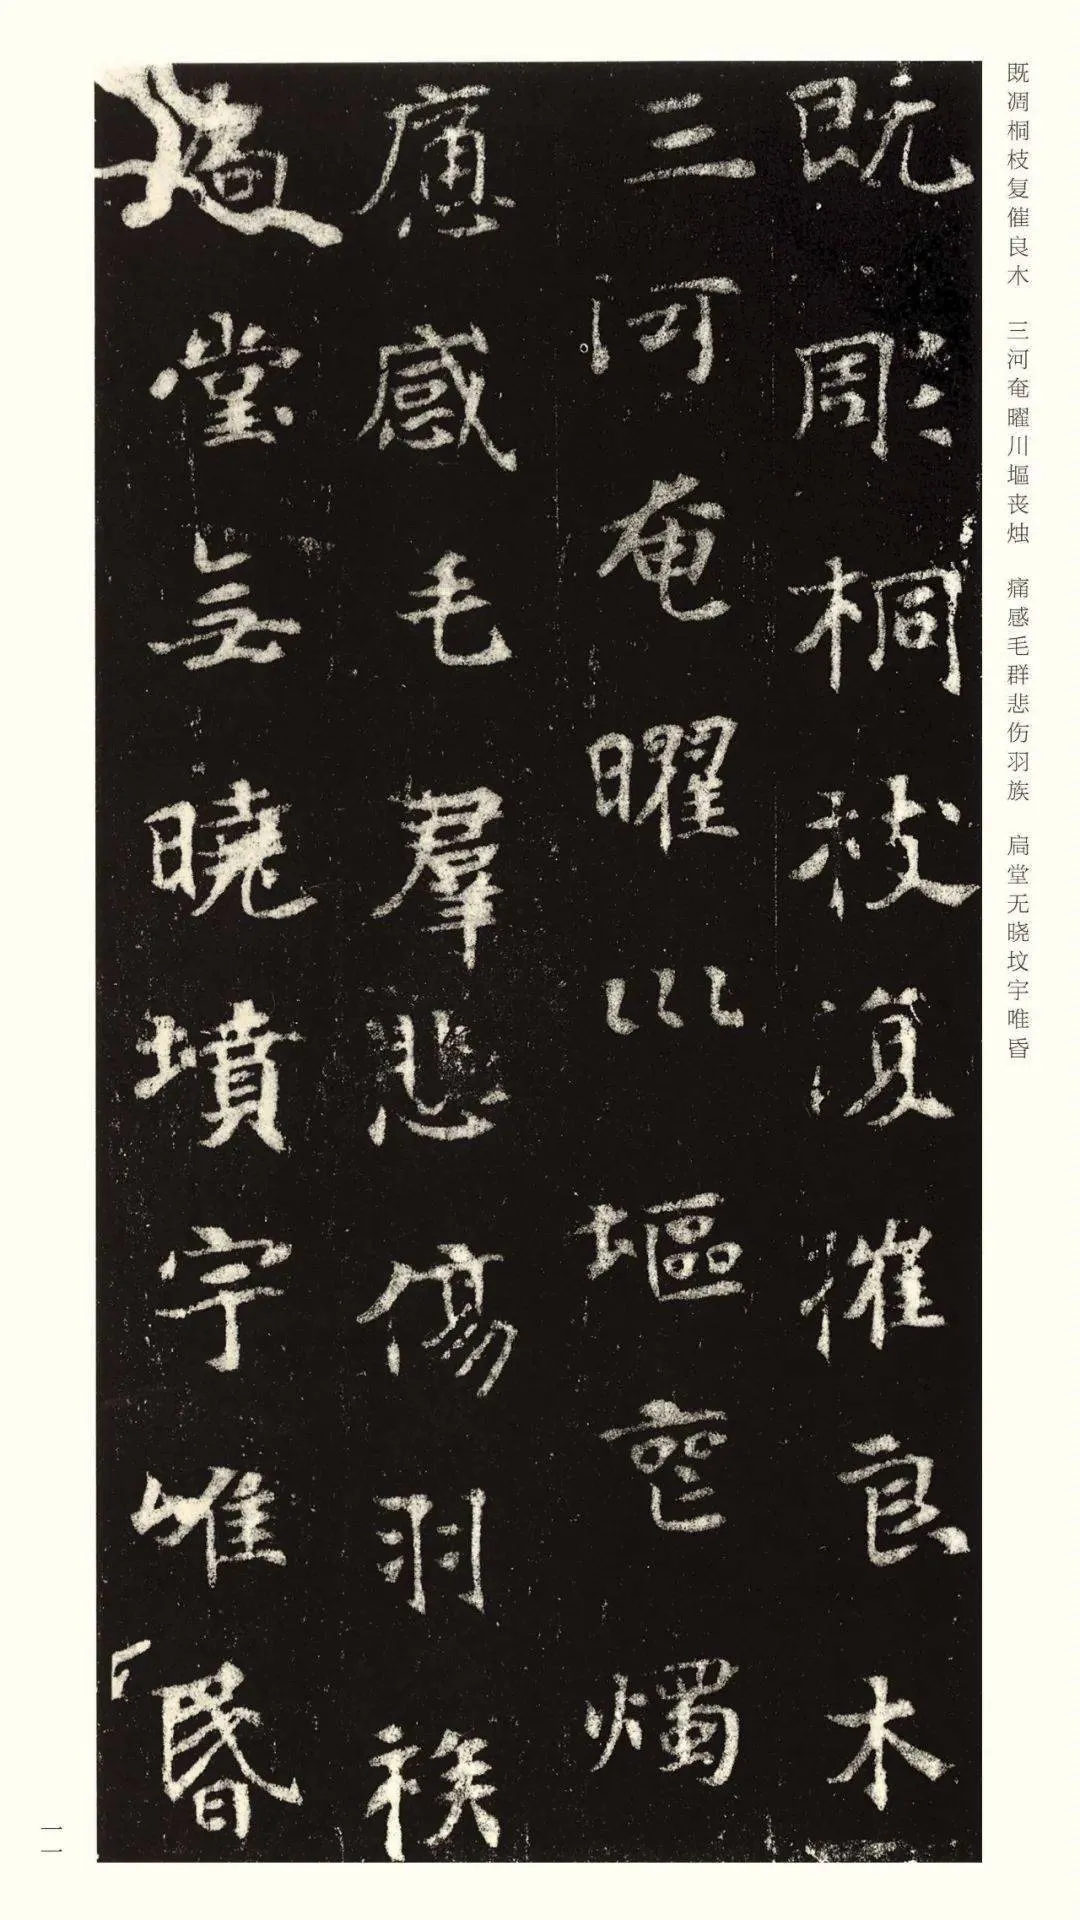 既凋桐枝复催良木 三河奄曜川塸丧烛 痛感毛群悲伤羽族 扃堂无晓坟宇唯昏
既彫桐枝復摧良木
三河奄曜川塸喪燭
痛感毛羣悲傷羽族
扃堂無曉墳宇唯昏
一一